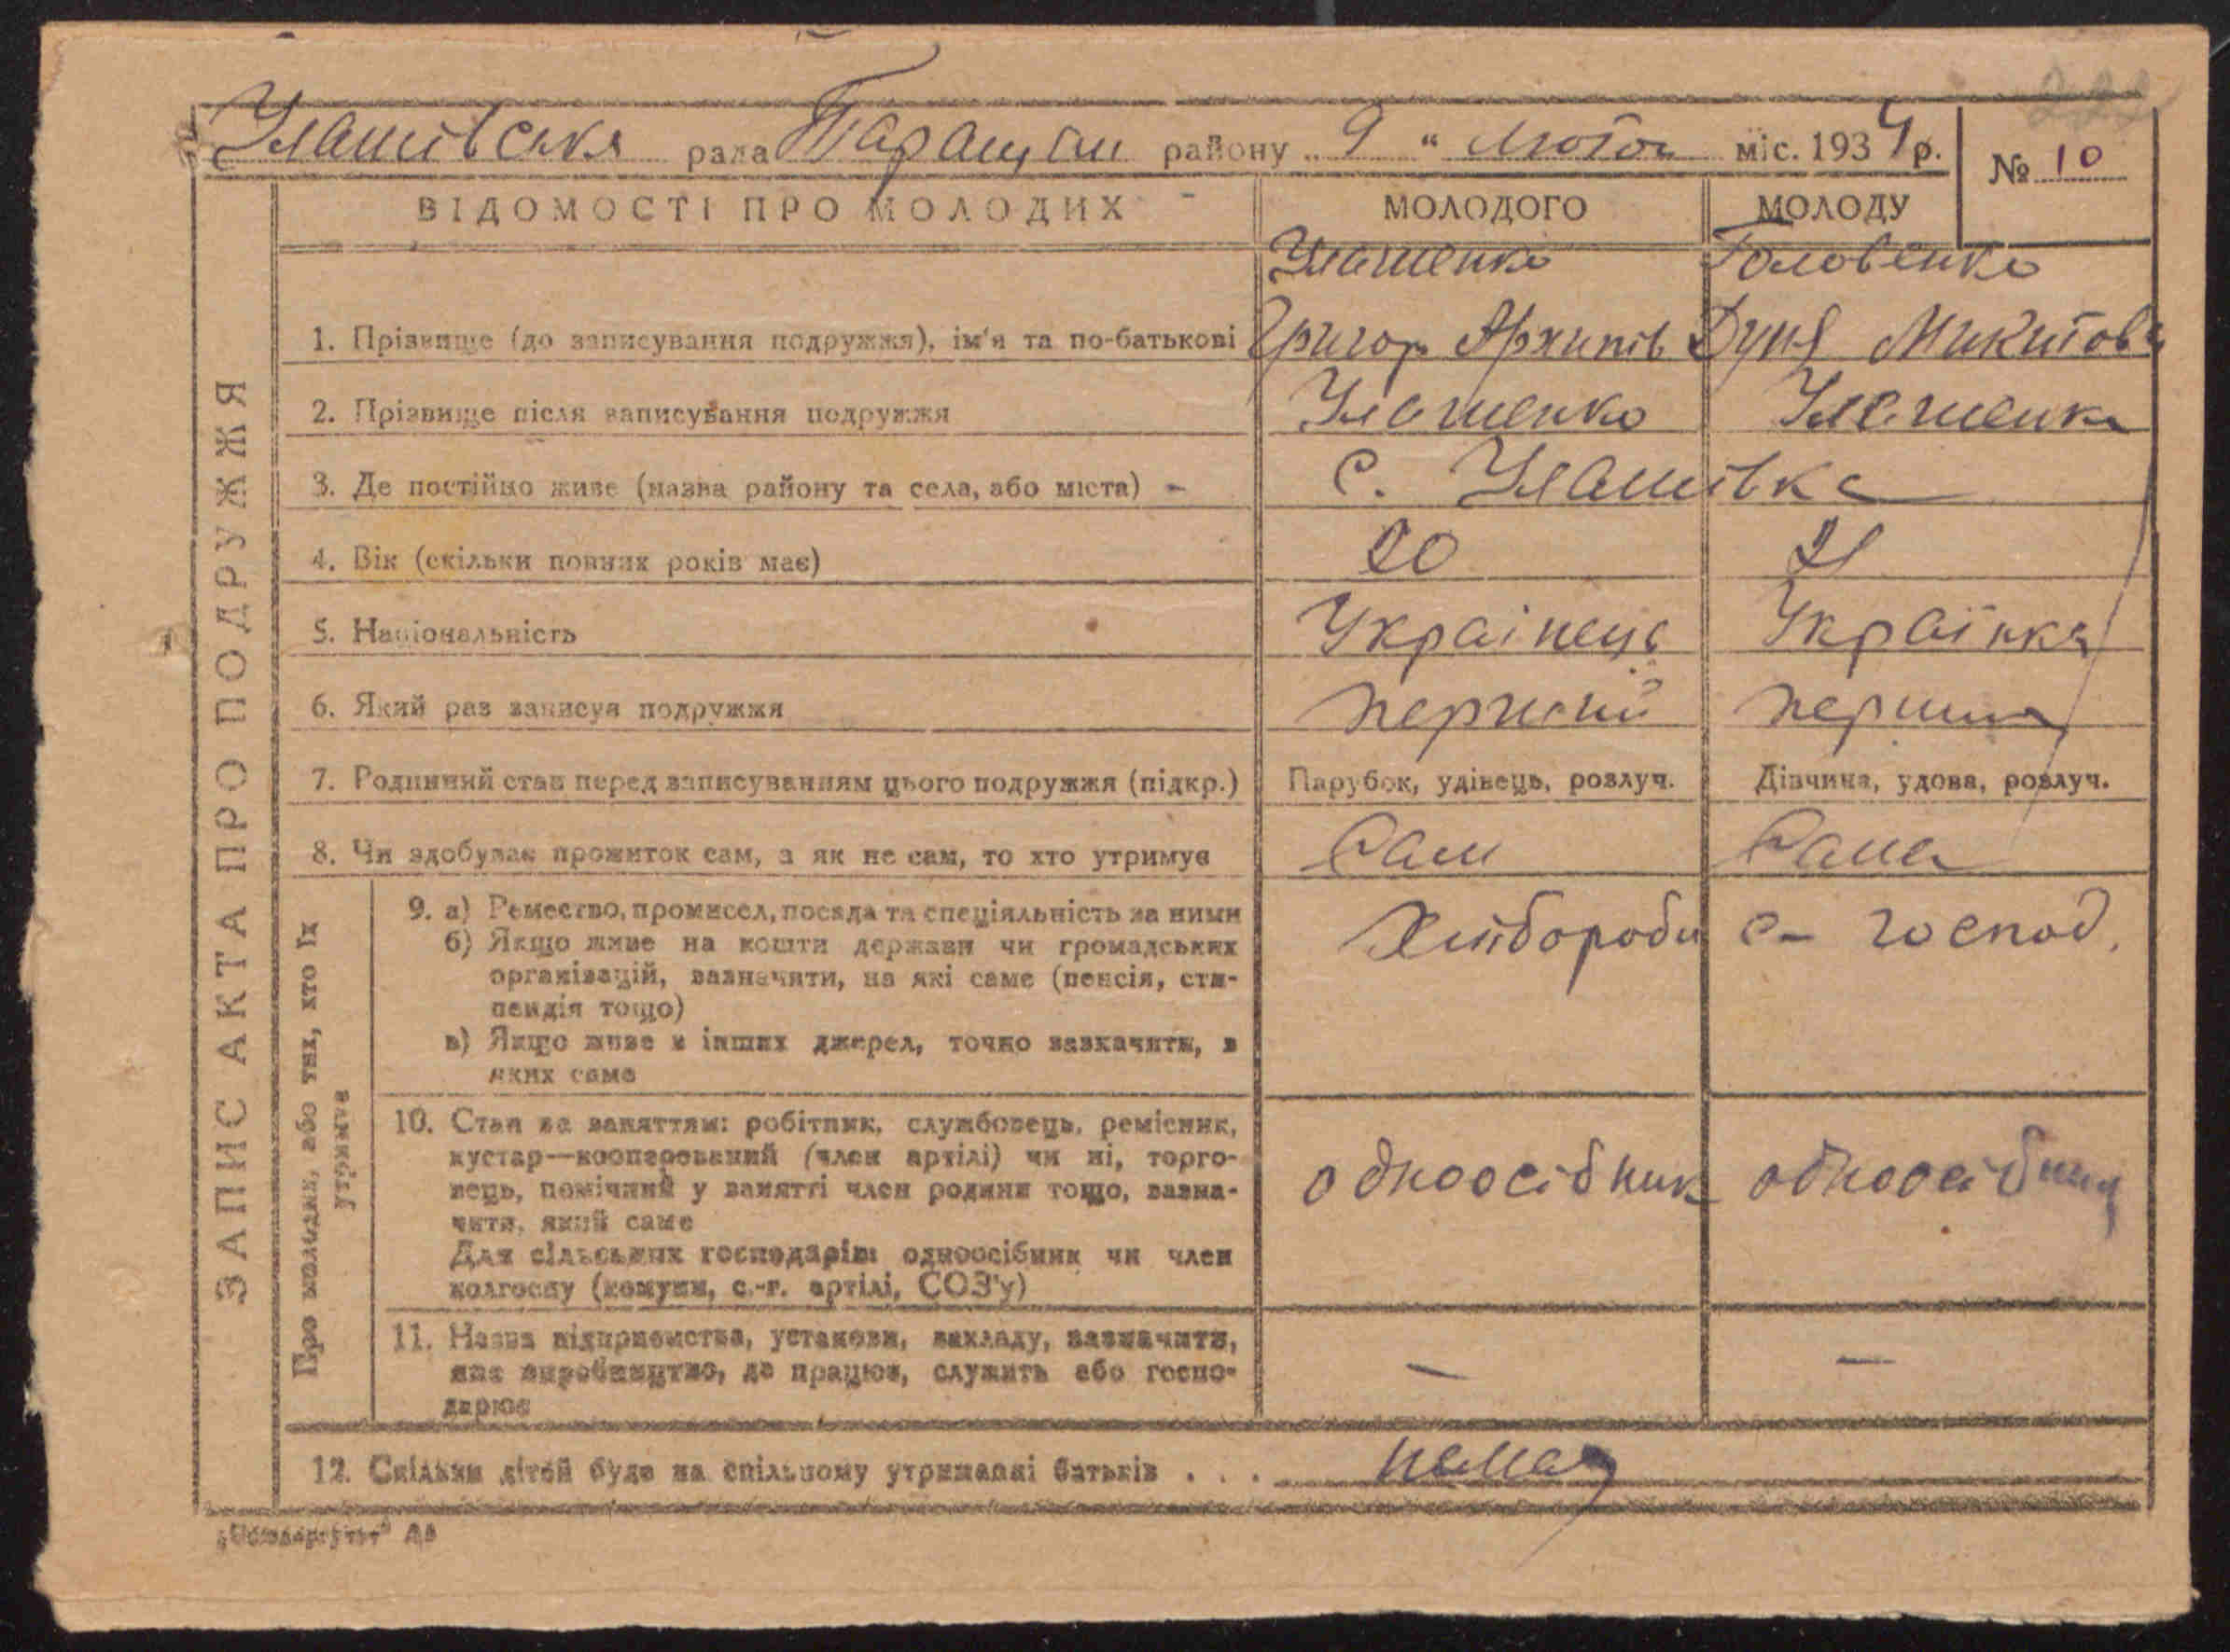 Улашівська рада Таращан району „ 9 “ Лютого міс. 1934 р.
№ 10
ВІДОМОСТІ ПРО МОЛОДИХ МОЛОДОГО МОЛОДУ
Улашенко Головенко
1. Прізвище (до записування подружжя), ім'я та по-батькові Григор Архипів Дуня Микитова
2. Прізвище після записування подружжя Улашенко Улашенко
3. Де постійно живе (назва району та села, або міста) с. Улашівка
4. Вік (скільки повних років має) 20 21
5. Національність Украінець Українка
6. Який раз записує подружжя перший перший
7. Родинний стан перед записуванням цього подружжя (підкр.) Парубок, удівець, розлуч. Дівчина, удова, розлуч.
8. Чи здобуває прожиток сам, а як не сам, то хто утримує Сам Сама
ЗАПИС АКТА ПРО ПОДРУЖЖЯ
Про молодих, або тих, хто їх
утримує
9. а) Ремество, промисел, посада та спеціяльність за ними Хлібороби с– господ.
б) Якщо живе на кошти держави чи громадських
організацій, зазначити, на які саме (пенсія, сти-
пендія тощо)
в) Якщо живе з інших джерел, точно зазначити, з
яких саме
10. Стан за заняттям: робітник, службовець, ремісник,
кустар—кооперований (член артілі) чи ні, торго-
вець, помічний у занятті член родини тощо, зазна-
чити, який саме
одноосібник одноосібниця
Для сільських господарів: одноосібник чи член
колгоспу (комуни, с.-г. артілі, СОЗ'у)
11. Назва підприємства, установи, закладу, зазначити,
яке виробництво, де працює, служить або госпо-
дарює
— —
12. Скільки дітей буде на спільному утриманні батьків . . . немає